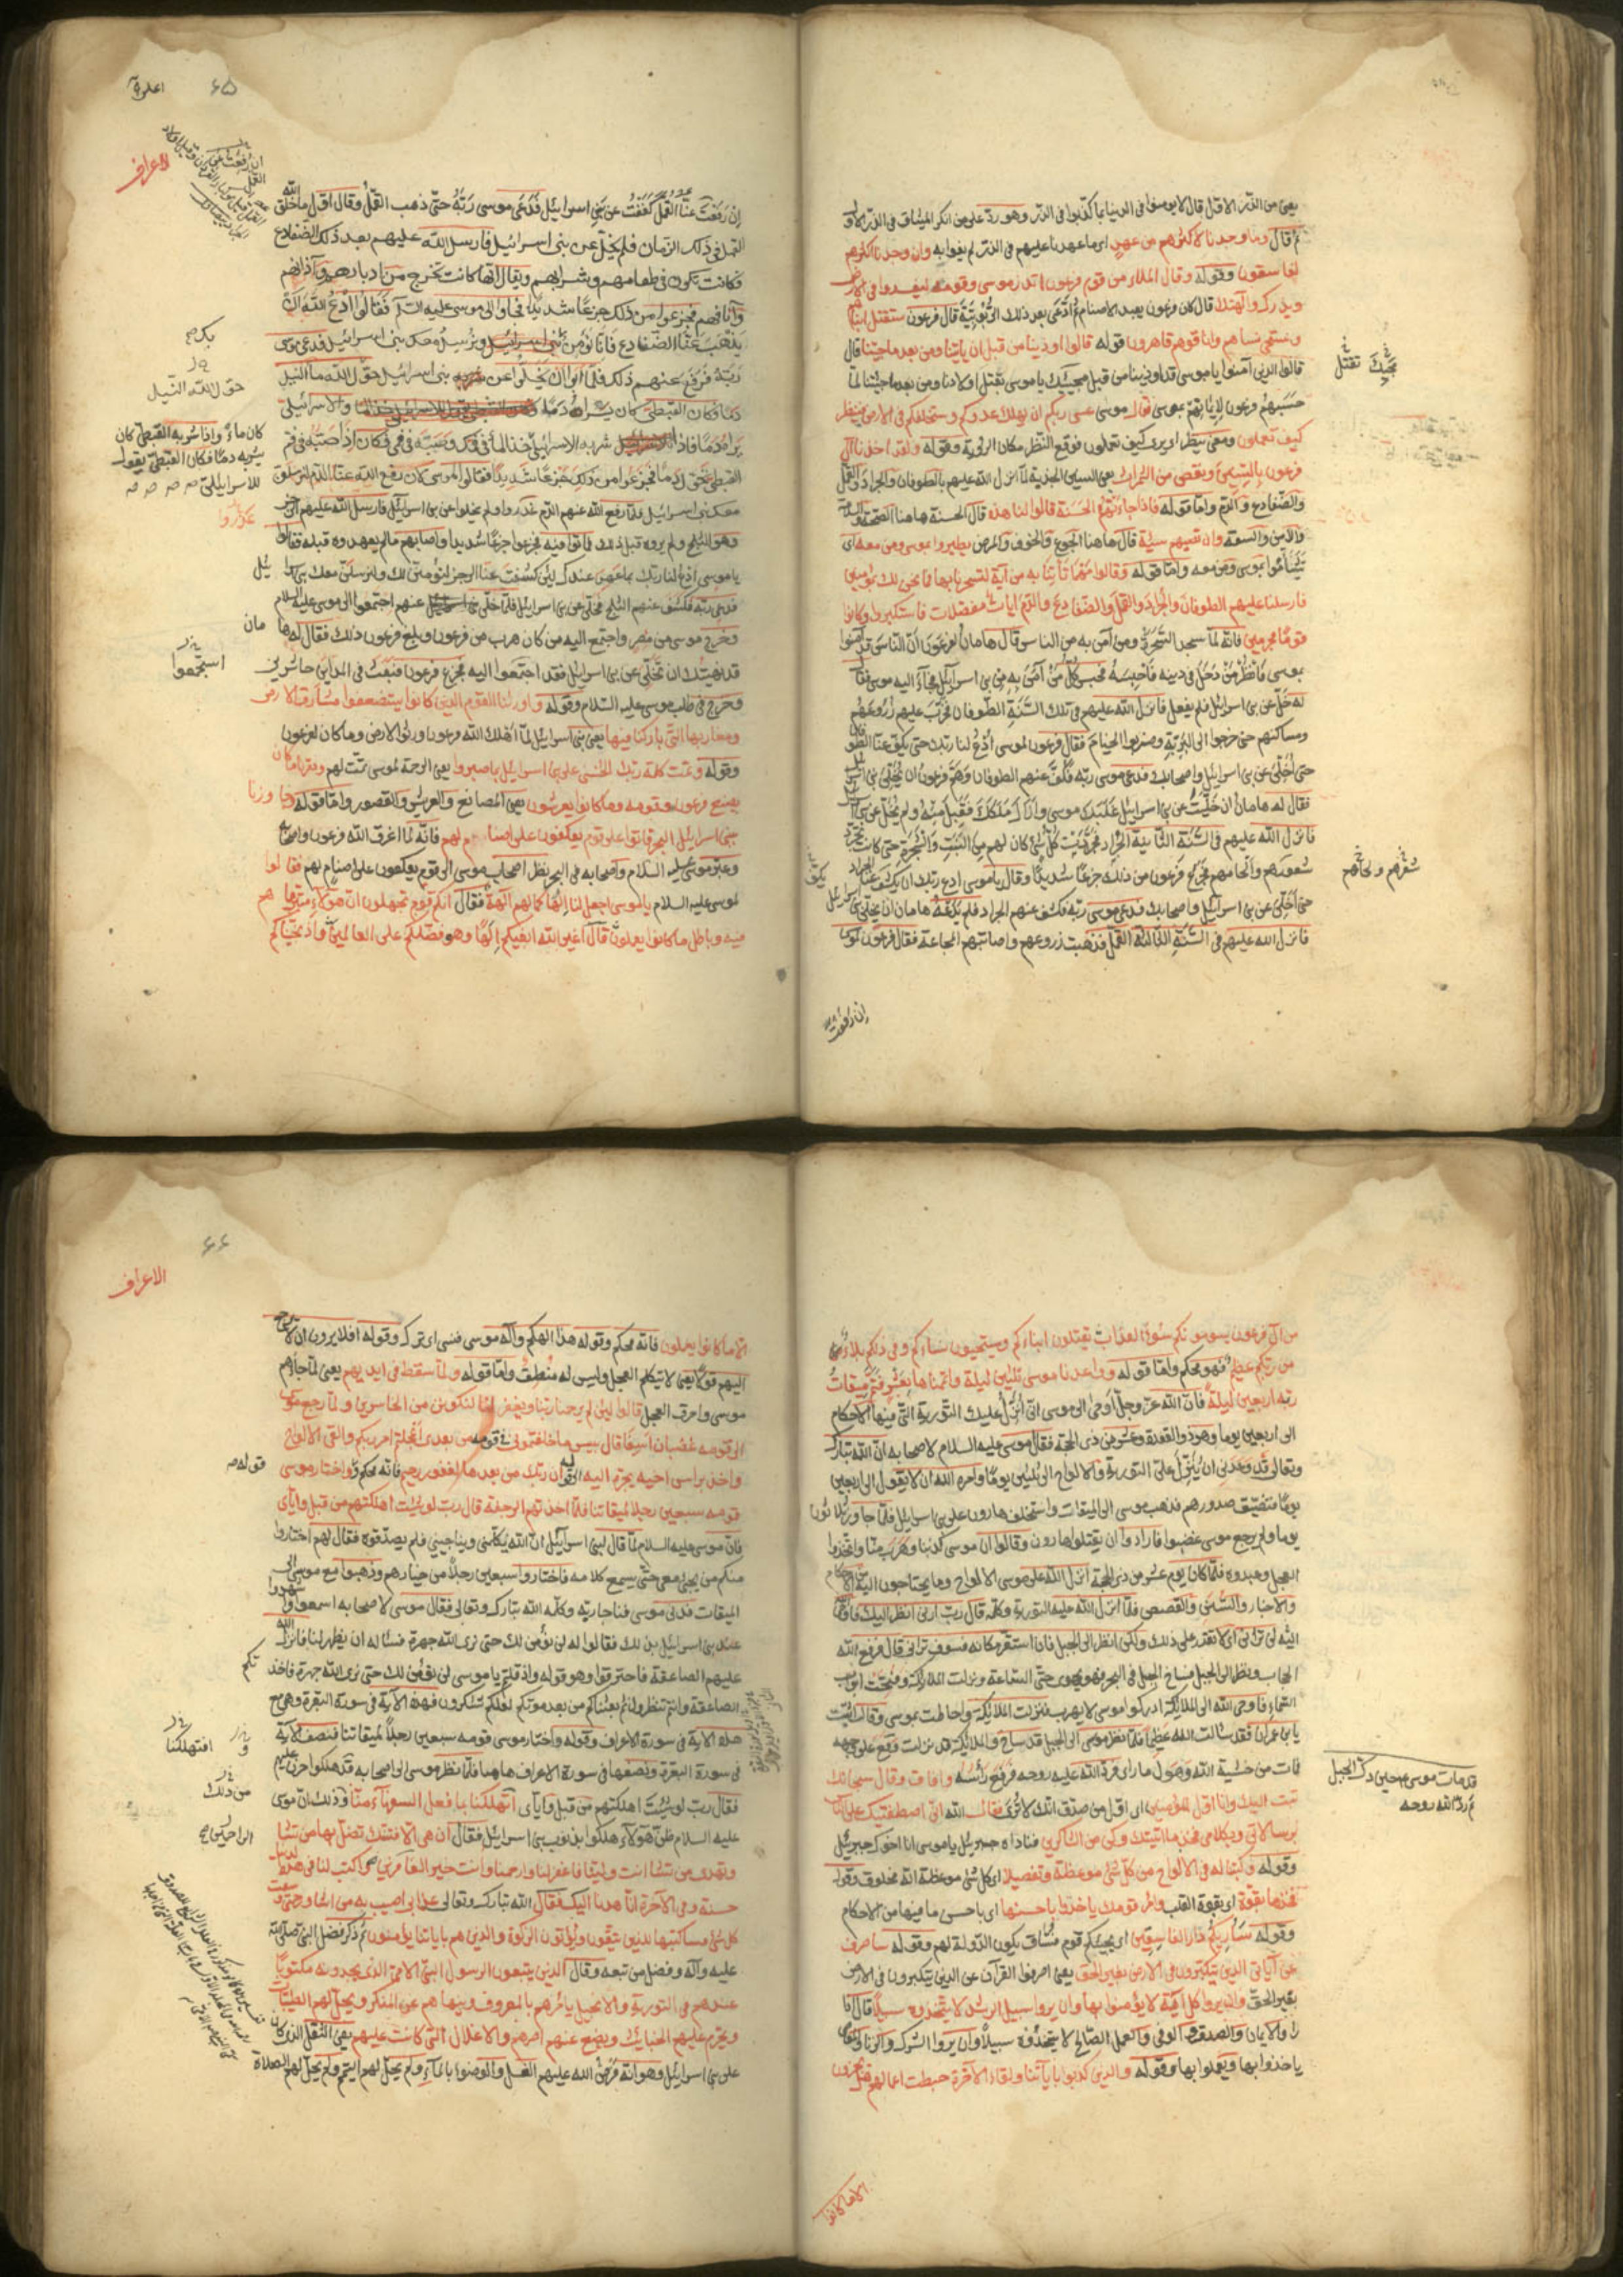 يعني من الذر الاول قال لا يؤمنوا في الدنيا بما كذبوا في الذر وهو رد على من انكر الميثاق في الذر الاول
ثم قال وما وجدنا لاكثرهم من عهد اي ما عهدنا عليهم في الذر لم يفوا به وان وجدنا اكثرهم
لفاسقون وقوله وقال الملاء من قوم فرعون اتذر موسى وقومه ليفسدوا في الارض
ويذرك وآلهتك قال كان فرعون يعبد الاصنام ثم ادعى بعد ذلك الربوبية قال فرعون سنقتل ابناءهم
ونستحيي نساءهم وانا فوقهم قاهرون قوله قالوا اوذينا من قبل ان تاتينا ومن بعد ما جئتنا قال
قالوا الذين آمنوا يا موسى قد اوذينا من قبل مجيئك يا موسى بقتل اولادنا ومن بعد ما جئتنا لما
حبسهم فرعون لايمانهم بموسى قال موسى عسى ربكم ان يهلك عدوكم ويستخلفكم في الارض فينظر
كيف تعملون ومعنى ينظر اي يرى كيف تعملون فوقع النظر مكان الرؤية وقوله ولقد اخذنا آل
فرعون بالسنين ونقص من الثمرات يعني السنين الجدبة لما انزل الله عليهم الطوفان والجراد والقمل
والضفادع والدم واما قوله فاذا جاءتهم الحسنة قالوا لنا هذه قال الحسنة هاهنا الصحة والسلامة
والامن والسعة وان تصبهم سيئة قال هاهنا الجوع والخوف والمرض يطيروا بموسى ومن معه اي
يتشأموا بموسى ومن معه واما قوله وقالوا مهما تأتنا به من آية لتسحرنا بها فما نحن لك بمؤمنين
فارسلنا عليهم الطوفان والجراد والقمل والضفادع والدم ايات مفصلات فاستكبروا وكانوا
قوما مجرمين فانه لما سجد السحرة ومن آمن به من الناس قال هامان لفرعون ان الناس قد آمنوا
بموسى فانظر من دخل في دينه فاحبسه فحبس كل من آمن به من بني اسرائيل فجآء اليه موسى فقال
له خل عن بني اسرائيل فلم يفعل فانزل الله عليهم في تلك السنة الطوفان فخرب عليهم دورهم
ومساكنهم حتى خرجوا الى البرية وضربوا الخيام فقال فرعون لموسى ادع لنا ربك حتى يكف عنا الطوفان
حتى اخلي عن بني اسرائيل واصحابك فدعى موسى ربه فكف عنهم الطوفان وهم فرعون ان يخلي بني اسرائيل
فقال له هامان ان خليت عن بني اسرائيل غلبك موسى وازال ملكك فقبل منه ولم يخل عن بني اسرائيل
فانزل الله عليهم في السنة الثانية الجراد فجردت كل شئ كان لهم من النبت والشجرة حتى كانت تجرد
شعورهم ولحاهم فجزع فرعون من ذلك جزعا شديدا وقال يا موسى ادع ربك ان يكشف عنا الجراد
حتى اخلي عن بني اسرائيل واصحابك فدعى موسى ربه فكشف عنهم الجراد فلم يدعه هامان ان يخلي عن بني اسرائيل
فانزل الله عليهم في السنة الثالثة القمل فذهبت زروعهم واصابتهم المجاعة فقال فرعون لموسى
مجيئك بقتل
شعرهم ولحاهم
يكف
ان رفعت
٦٥
الاعراف
ان رفعت عنا القمل كففت عن بني اسرائيل فدعى موسى ربه حتى ذهب القمل وقال اول ما خلق الله
القمل في ذلك الزمان فلم يخل عن بني اسرائيل فارسل الله عليهم بعد ذلك الضفادع
فكانت تكون في طعامهم وشرابهم ويقال انها كانت تخرج من ادبارهم وآذانهم
وآنافهم فجزعوا من ذلك جزعا شديدا فجاوا الى موسى عليه السلام فقالوا ادع الله ان
يذهب عنا الضفادع فانا نؤمن بك ونرسل معك بني اسرائيل فدعى موسى
ربه فرفع عنهم ذلك فلما ابوا ان يخلوا عن بني اسرائيل حول الله ماء النيل
دما فكان القبطي كان يراه دما والاسرائيلي
يراه دما فاذا شربه الاسرائيلي خذ الماء في فمك وصبه في فمي فكان اذا صبه في فم
القبطي تحول دما فجزعوا من ذلك جزعا شديدا فقالوا لموسى لان رفع الله عنا الدم لنرسلن
معك بني اسرائيل فلما رفع الله عنهم الدم غدروا ولم يخلوا عن بني اسرائيل فارسل الله عليهم الرجز
وهو الثلج ولم يروه قبل ذلك فماتوا فيه فجزعوا جزعا شديدا واصابهم ما لم يعهدوه قبله فقالوا
يا موسى ادع لنا ربك بما عهد عندك لئن كشفت عنا الرجز لنؤمنن لك ولنرسلن معك بني اسرائيل
فدعى ربه فكشف عنهم الثلج فخلى عن بني اسرائيل فلما خلى عنهم اجتمعوا الى موسى عليه السلام
وخرج موسى من مصر واجتمع اليه من كان هرب من فرعون وبلغ فرعون ذلك فقال له هامان
قد نهيتك ان تخلي عن بني اسرائيل فقد اجتمعوا اليه فجزع فرعون فبعث في المدائن حاشرين
وخرج في طلب موسى عليه السلام وقوله واورثنا القوم الذين كانوا يستضعفون مشارق الارض
ومغاربها التي باركنا فيها يعني بني اسرائيل لما اهلك الله فرعون ورثوا الارض وما كان لفرعون
وقوله وتمت كلمة ربك الحسنى على بني اسرائيل بما صبروا يعني الرحمة لموسى تمت لهم ودمرنا ما كان
يصنع فرعون وقومه وما كانوا يعرشون يعني المصانع والعريش والقصور واما قوله وجاوزنا
ببني اسرائيل البحر فاتوا على قوم يعكفون على اصنام لهم فانه لما اغرق الله فرعون واصحابه
وعبر موسى عليه السلام واصحابه في البحر نظر اصحاب موسى الى قوم يعكفون على اصنام لهم فقالوا
لموسى عليه السلام يا موسى اجعل لنا الها كما لهم آلهة فقال انكم قوم تجهلون ان هؤلاء متبر ما هم
فيه وباطل ما كانوا يعملون قال اغير الله ابغيكم الها وهو فضلكم على العالمين واذ نجيناكم
بك
حول الله النيل
كان ماء واذا شربه القبطي كان
يشربه دما فكان القبطي يقول
للاسرائيلي
غدروا
استجمعوا
من آل فرعون يسومونكم سوء العذاب يقتلون ابناءكم ويستحيون نساءكم وفي ذلكم بلاء
من ربكم عظيم فهو محكم واما قوله وواعدنا موسى ثلثين ليلة واتممناها بعشر فتم ميقات
ربه اربعين ليلة فان الله عز وجل اوحى الى موسى اني انزل عليك التورية التي فيها الاحكام
الى اربعين يوما وهو ذو القعدة وعشر من ذي الحجة فقال موسى عليه السلام لاصحابه ان الله تبارك
وتعالى قد وعدني ان ينزل علي التورية والالواح الى ثلثين يوما وامره الله ان لا يقول الى اربعين
يوما فتضيق صدورهم فذهب موسى الى الميقات واستخلف هارون على بني اسرائيل فلما جاوز ثلاثون
يوما ولم يرجع موسى غضبوا فارادوا ان يقتلوا هارون وقالوا ان موسى كذبنا وهرب منا واتخذوا
العجل وعبدوه فلما كان يوم عشر من ذي الحجة انزل الله على موسى الالواح وما يحتاجون اليه من الاحكام
والاخبار والسنن والقصص فلما انزل الله عليه التورية وكلمه قال رب ارني انظر اليك فاوحى
الله لن تراني اي لا تقدر على ذلك ولكن انظر الى الجبل فان استقر مكانه فسوف تراني قال فرفع الله
الحجاب ونظر الى الجبل فساخ الجبل في البحر فهو يهوي حتى الساعة ونزلت الملائكة وفتحت ابواب
السماء فاوحى الله الى الملائكة ادركوا موسى لا يهرب فنزلت الملائكة واحاطت بموسى وقالت اثبت
يا بن عمران فقد سالت الله عظيما فلما نظر موسى الى الجبل قد ساخ والملائكة قد نزلت وقع على وجهه
فمات من خشية الله وهول ما راى فرد الله عليه روحه فرفع رأسه وافاق وقال سبحانك
تبت اليك وانا اول المؤمنين اي اول من صدق انك لا ترى فقال الله اني اصطفيتك على الناس
برسالاتي وبكلامي فخذ ما اتيتك وكن من الشاكرين فناداه جبرئيل يا موسى انا اخوك جبرئيل
وقوله وكتبنا له في الالواح من كل شئ موعظة وتفصيلا اي كل شئ موعظة انه مخلوق وقوله
فخذها بقوة اي بقوة القلب وامر قومك ياخذوا باحسنها اي باحسن ما فيها من الاحكام
وقوله ساريكم دار الفاسقين اي يجيئكم قوم فساق يكون الدولة لهم وقوله ساصرف
عن آياتي الذين يتكبرون في الارض بغير الحق يعني اصرفوا القرآن عن الذين يتكبرون في الارض
بغير الحق وان يروا كل آية لا يؤمنوا بها وان يروا سبيل الرشد لا يتخذوه سبيلا قال اذا
راوا الايمان والصدق والوفى والعمل الصالح لا يتخذوه سبيلا وان يروا الشرك والزنا
ياخذوا بها ويعملوا بها وقوله والذين كذبوا بآياتنا ولقاء الآخرة حبطت اعمالهم هل يجزون
قد مات موسى حين دك الجبل
ثم رد الله روحه
الا ما كانوا
٦٦
الاعراف
الا ما كانوا يعملون فانه محكم وقوله هذا الهكم واله موسى فنسي اي ترك وقوله افلا يرون ان لا يرجع
اليهم قولا يعني لا يتكلم العجل وليس له منطق واما قوله ولما سقط في ايديهم يعني لما جاءهم
موسى واحرق العجل قالوا لئن لم يرحمنا ربنا ويغفر لنا لنكونن من الخاسرين ولما رجع موسى
الى قومه غضبان اسفا قال بئس ما خلفتموني من بعدي اعجلتم امر ربكم والقى الالواح
واخذ براس اخيه يجره اليه الى قوله ان ربك من بعدها لغفور رحيم فانه محكم واختار موسى
قومه سبعين رجلا لميقاتنا فلما اخذتهم الرجفة قال رب لو شئت اهلكتهم من قبل واياي
فان موسى عليه السلام لما قال لبني اسرائيل ان الله يكلمني ويناجيني فلم يصدقوه فقال لهم اختاروا
منكم من يجئ معي حتى يسمع كلامه فاختاروا سبعين رجلا من خيارهم وذهبوا مع موسى الى
الميقات فدنى موسى فناجا ربه وكلمه الله تبارك وتعالى فقال موسى لاصحابه اسمعوا واشهدوا
عند بني اسرائيل بذلك فقالوا له لن نؤمن لك حتى نرى الله جهرة فساله ان يظهر لنا فانزل الله
عليهم الصاعقة فاحترقوا وهو قوله واذ قلتم يا موسى لن نؤمن لك حتى نرى الله جهرة فاخذتكم
الصاعقة وانتم تنظرون ثم بعثناكم من بعد موتكم لعلكم تشكرون فهذه الآية في سورة البقرة وهي مع
هذه الآية في سورة الاعراف وقوله واختار موسى قومه سبعين رجلا لميقاتنا فنصف الآية
في سورة البقرة ونصفها في سورة الاعراف هاهنا فلما نظر موسى الى اصحابه قد هلكوا حزن عليهم
فقال رب لو شئت اهلكتهم من قبل واياي اتهلكنا بما فعل السفهاء منا وذلك ان موسى
عليه السلام ظن هؤلاء هلكوا بذنوب بني اسرائيل فقال ان هي الا فتنتك تضل بها من تشاء
وتهدي من تشاء انت ولينا فاغفر لنا وارحمنا وانت خير الغافرين واكتب لنا في هذه الدنيا
حسنة وفي الآخرة انا هدنا اليك فقال الله تبارك وتعالى عذابي اصيب به من اشاء ورحمتي وسعت
كل شئ فساكتبها للذين يتقون ويؤتون الزكوة والذين هم باياتنا يؤمنون ثم ذكر فضل النبي صلى الله
عليه وآله وفضل من تبعه وقال الذين يتبعون الرسول النبي الامي الذي يجدونه مكتوبا
عندهم في التورية والانجيل يامرهم بالمعروف وينهاهم عن المنكر ويحل لهم الطيبات
ويحرم عليهم الخبائث ويضع عنهم اصرهم والاغلال التي كانت عليهم يعني الثقل الذي كان
على بني اسرائيل وهو انه فرض الله عليهم الغسل والوضوء بالماء ولم يحل لهم التيمم ولم يحل لهم الصلاة
قوله
تكم
افتهلكنا
من ذلك